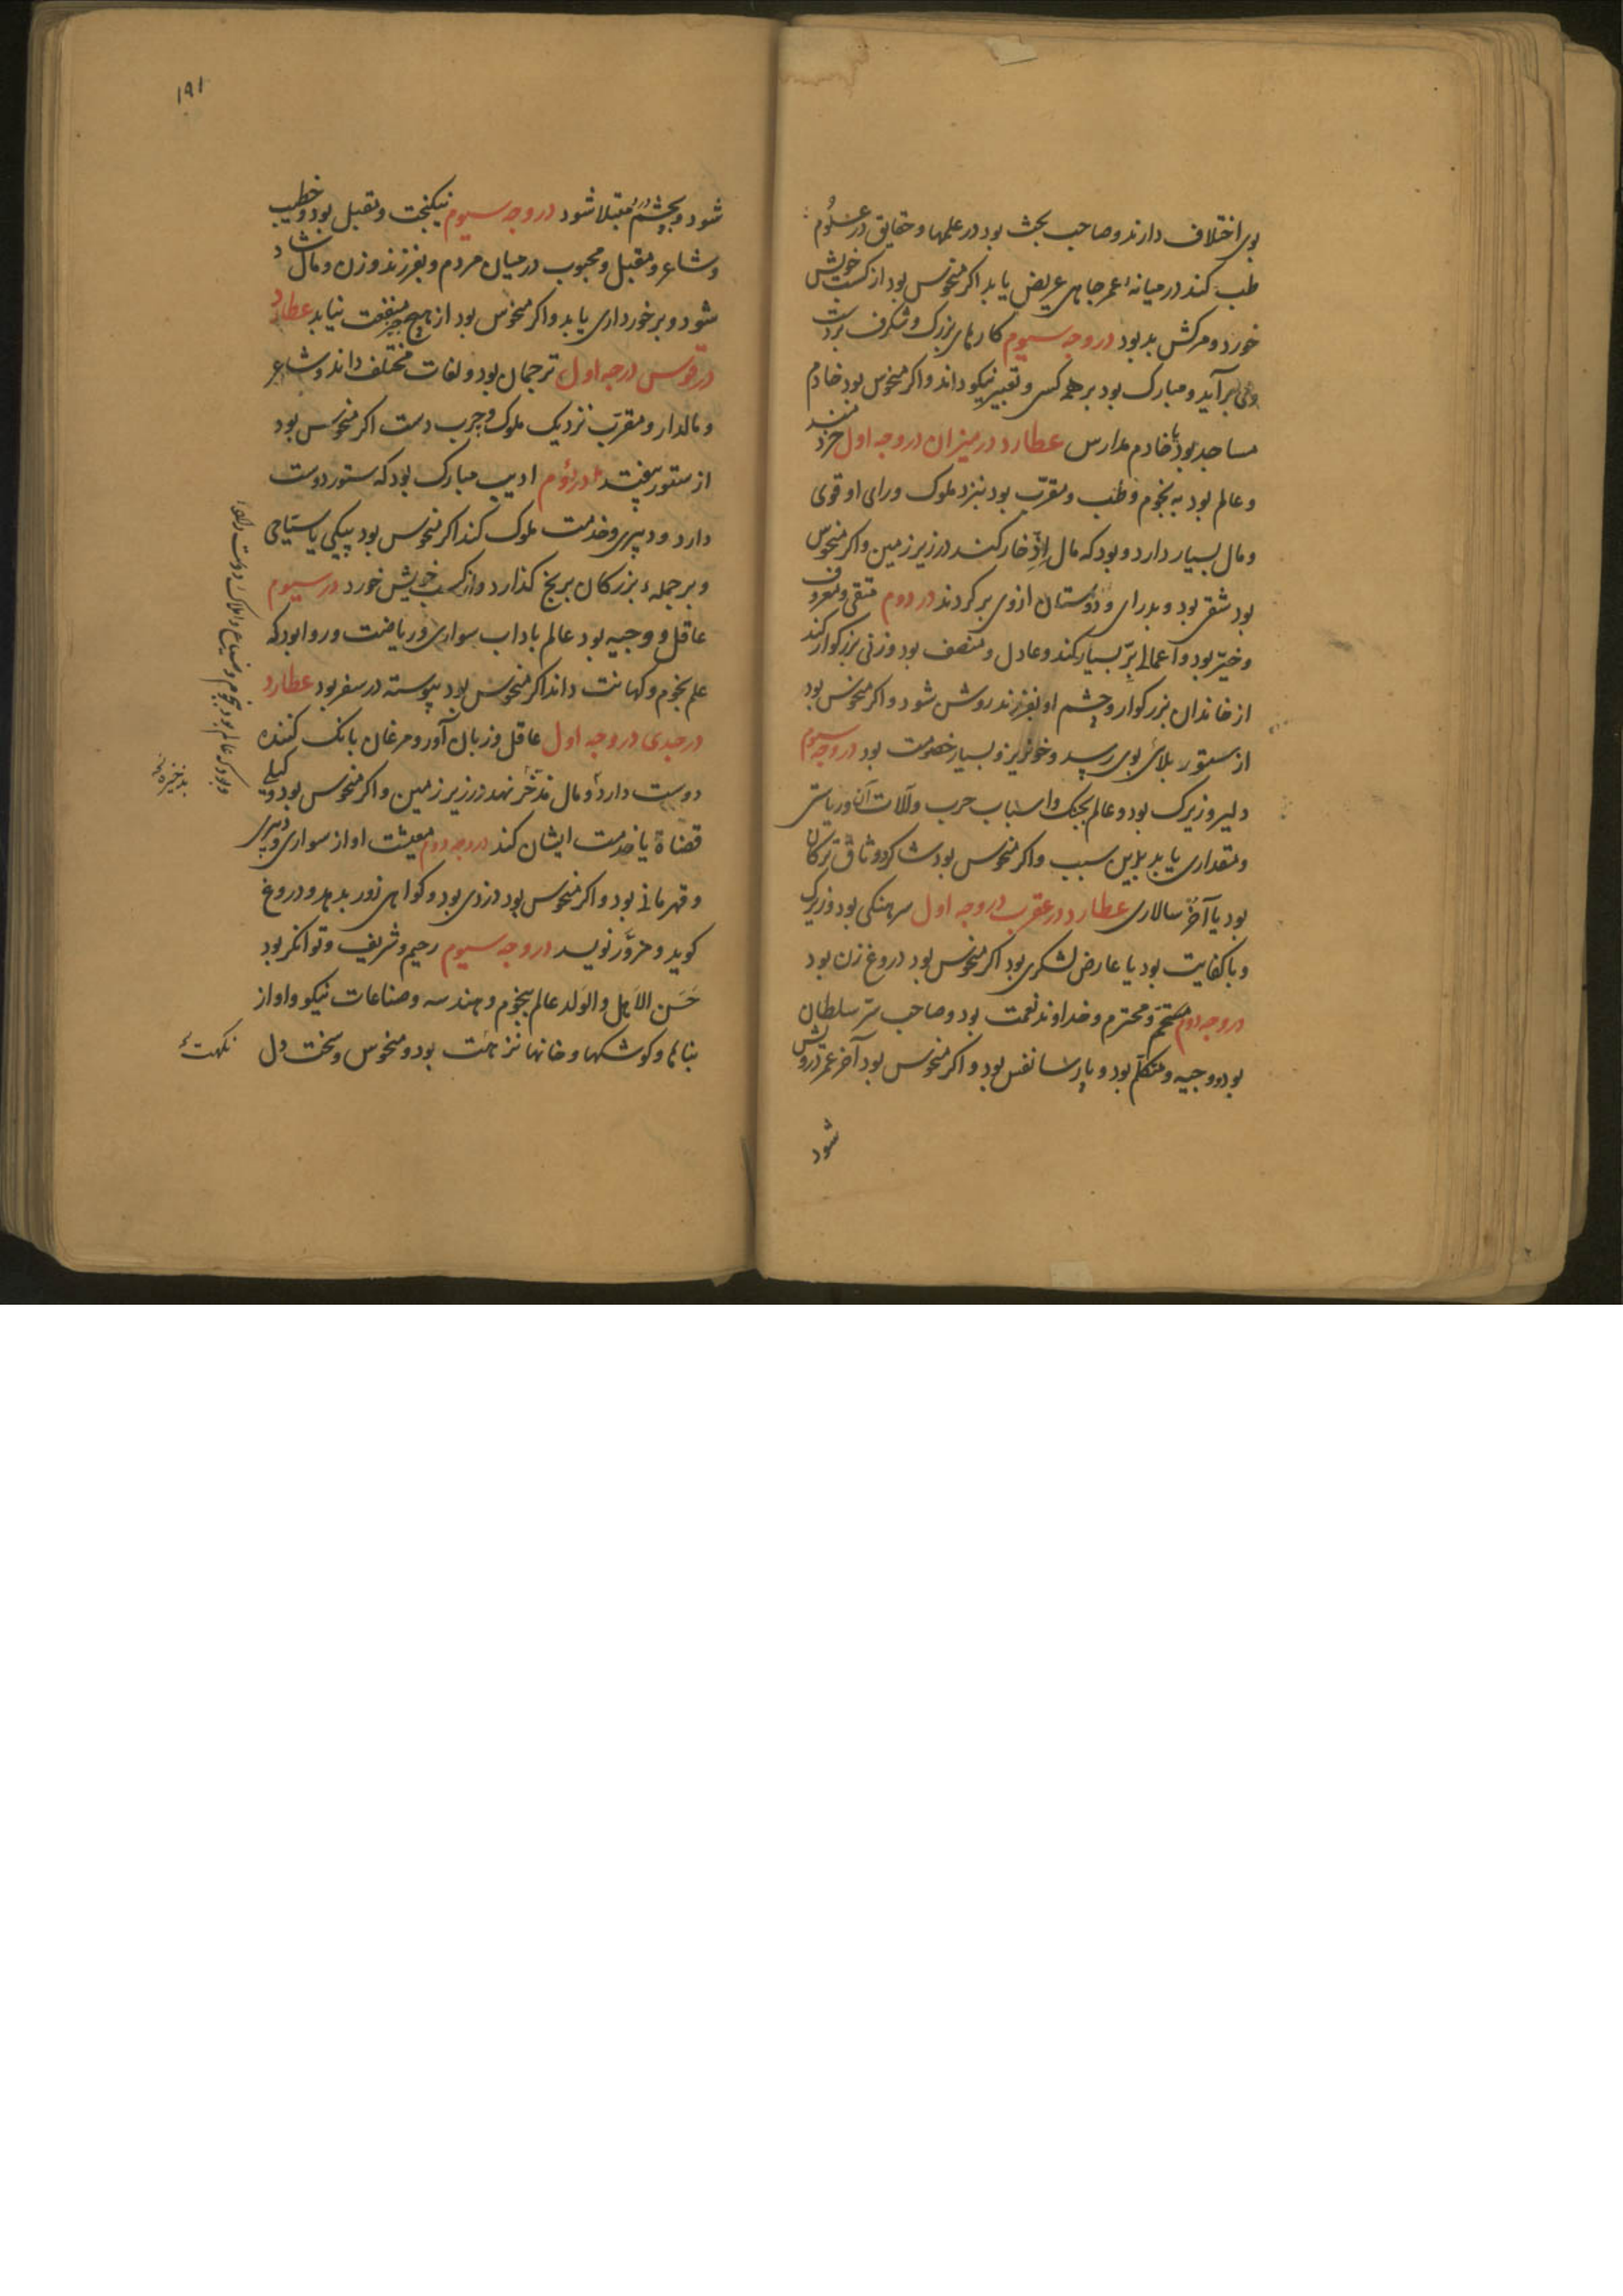 بوی اختلاف دارند و صاحب بحث بود در علمها و حقایق در علوم
طب کند در میانهٔ عمر جاهی عریض یابد اکر منحوس بود از کسب خویش
خورد و مرکش بد بود در وجه سیوم کارهای بزرک و شکرف بر دست
وی بر آید و مبارک بود بر همه کس و تعبیر نیکو داند و اکر منحوس بود خادم
مساجد بود یا خادم مدارس عطارد در میزان در وجه اول خردمند
و عالم بود به نجوم و طب و مقرب بود بنزد ملوک و رای او قوی
و مال بسیار دارد و بود که مال را ذخار کند در زیر زمین و اکر منحوس
بود شقی بود و بد رای و دوستان ازوی بر کردند در دوم متقی و معروف
و خیّر بود و اعمال برّ بسیار کند و عادل و منصف بود و زنی بزرکوار کند
از خاندان بزرکوار و چشم او بفرزند روشن شود و اکر منحوس بود
از ستور بلای بوی رسد و خونریز و بسیار خصومت بود در وجه سیوم
دلیر و زیرک بود و عالم بجنک و اسباب حرب و آلات آن و ریاستی
و مقداری یابد بدین سبب و اکر منحوس بود شاکرد وثاق ترکان
بود یا آخر سالاری عطارد در عقرب در وجه اول سرهنکی بود و زیرک
و با کفایت بود یا عارض لشکری بود اکر منحوس بود دروغ زن بود
در وجه دوم محتشم و محترم و خداوند نعمت بود و صاحب سرّ سلطان
بود و وجیه و متکلم بود و پارسا نفس بود و اکر منحوس بود آخر عمر درویش
شود
۱۹۱
شود و بچشم درد مبتلا شود در وجه سیوم نیکبخت و مقبل بود و خطیب
و شاعر و مقبل و محبوب در میان مردم و بفرزند و زن و مال شاد
شود و برخورداری یابد و اکر منحوس بود از هیچ چیز منفعت نیابد عطارد
در قوس در جه اول ترجمان بود و لغات مختلف داند و شاعر
و مالدار و مقرب نزدیک ملوک و چرب دست اکر منحوس بود
از ستور بیفتد در دوم ادیب مبارک بود که ستور دوست
دارد و دبیری و خدمت ملوک کند اکر منحوس بود پیکی یا سیّاحی
و بر جملهٔ بزرکان برنج کذارد و از کسب خویش خورد در سیوم
عاقل و وجیه بود عالم باداب سواری و ریاضت و روا بود که
علم نجوم و کهانت داند اکر منحوس بود پیوسته در سفر بود عطارد
در جدی در وجه اول عاقل و زبان آور و مرغان بانک کننده
دوست دارد و مال مدّخر نهد در زیر زمین و اکر منحوس بود وکیلی
قضاة یا خدمت ایشان کند در وجه دوم معیشت او از سواری و دبیری
و قهرمانی بود و اکر منحوس بود دزدی بود و کواهی زور بدهد و دروغ
کوید و مزوّر نویسد در وجه سیوم رحیم و شریف و توانکر بود
حَسَن الاهل و الوَلد عالم بنجوم و هندسه و صناعات نیکو و او از
بناها و کوشکها و خانها نزهت بود و منحوس و سخت دل
و بود که عالم بود بنجوم و ضیاع و املاک دوست دارد
بذخیره
نکهت